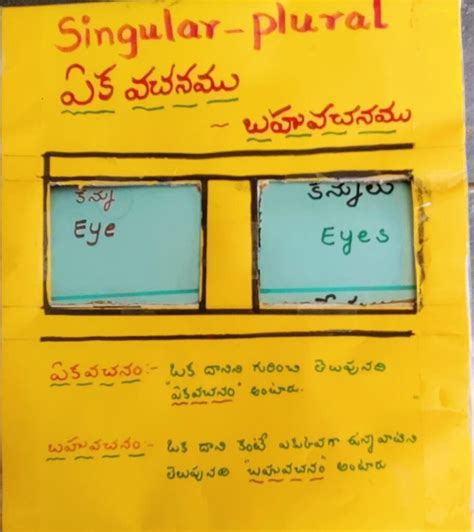 Singular-plural
ఏక వచనము
- బహువచనము
కన్ను
Eye
కన్నులు
Eyes
ఏకవచనం:- ఒక దానిని గురించి తెలుపునది
"ఏకవచనం" అంటారు.
బహువచనం:- ఒక దాని కంటే ఎక్కువగా ఉన్నవాటిని
తెలుపునది "బహువచనం" అంటారు